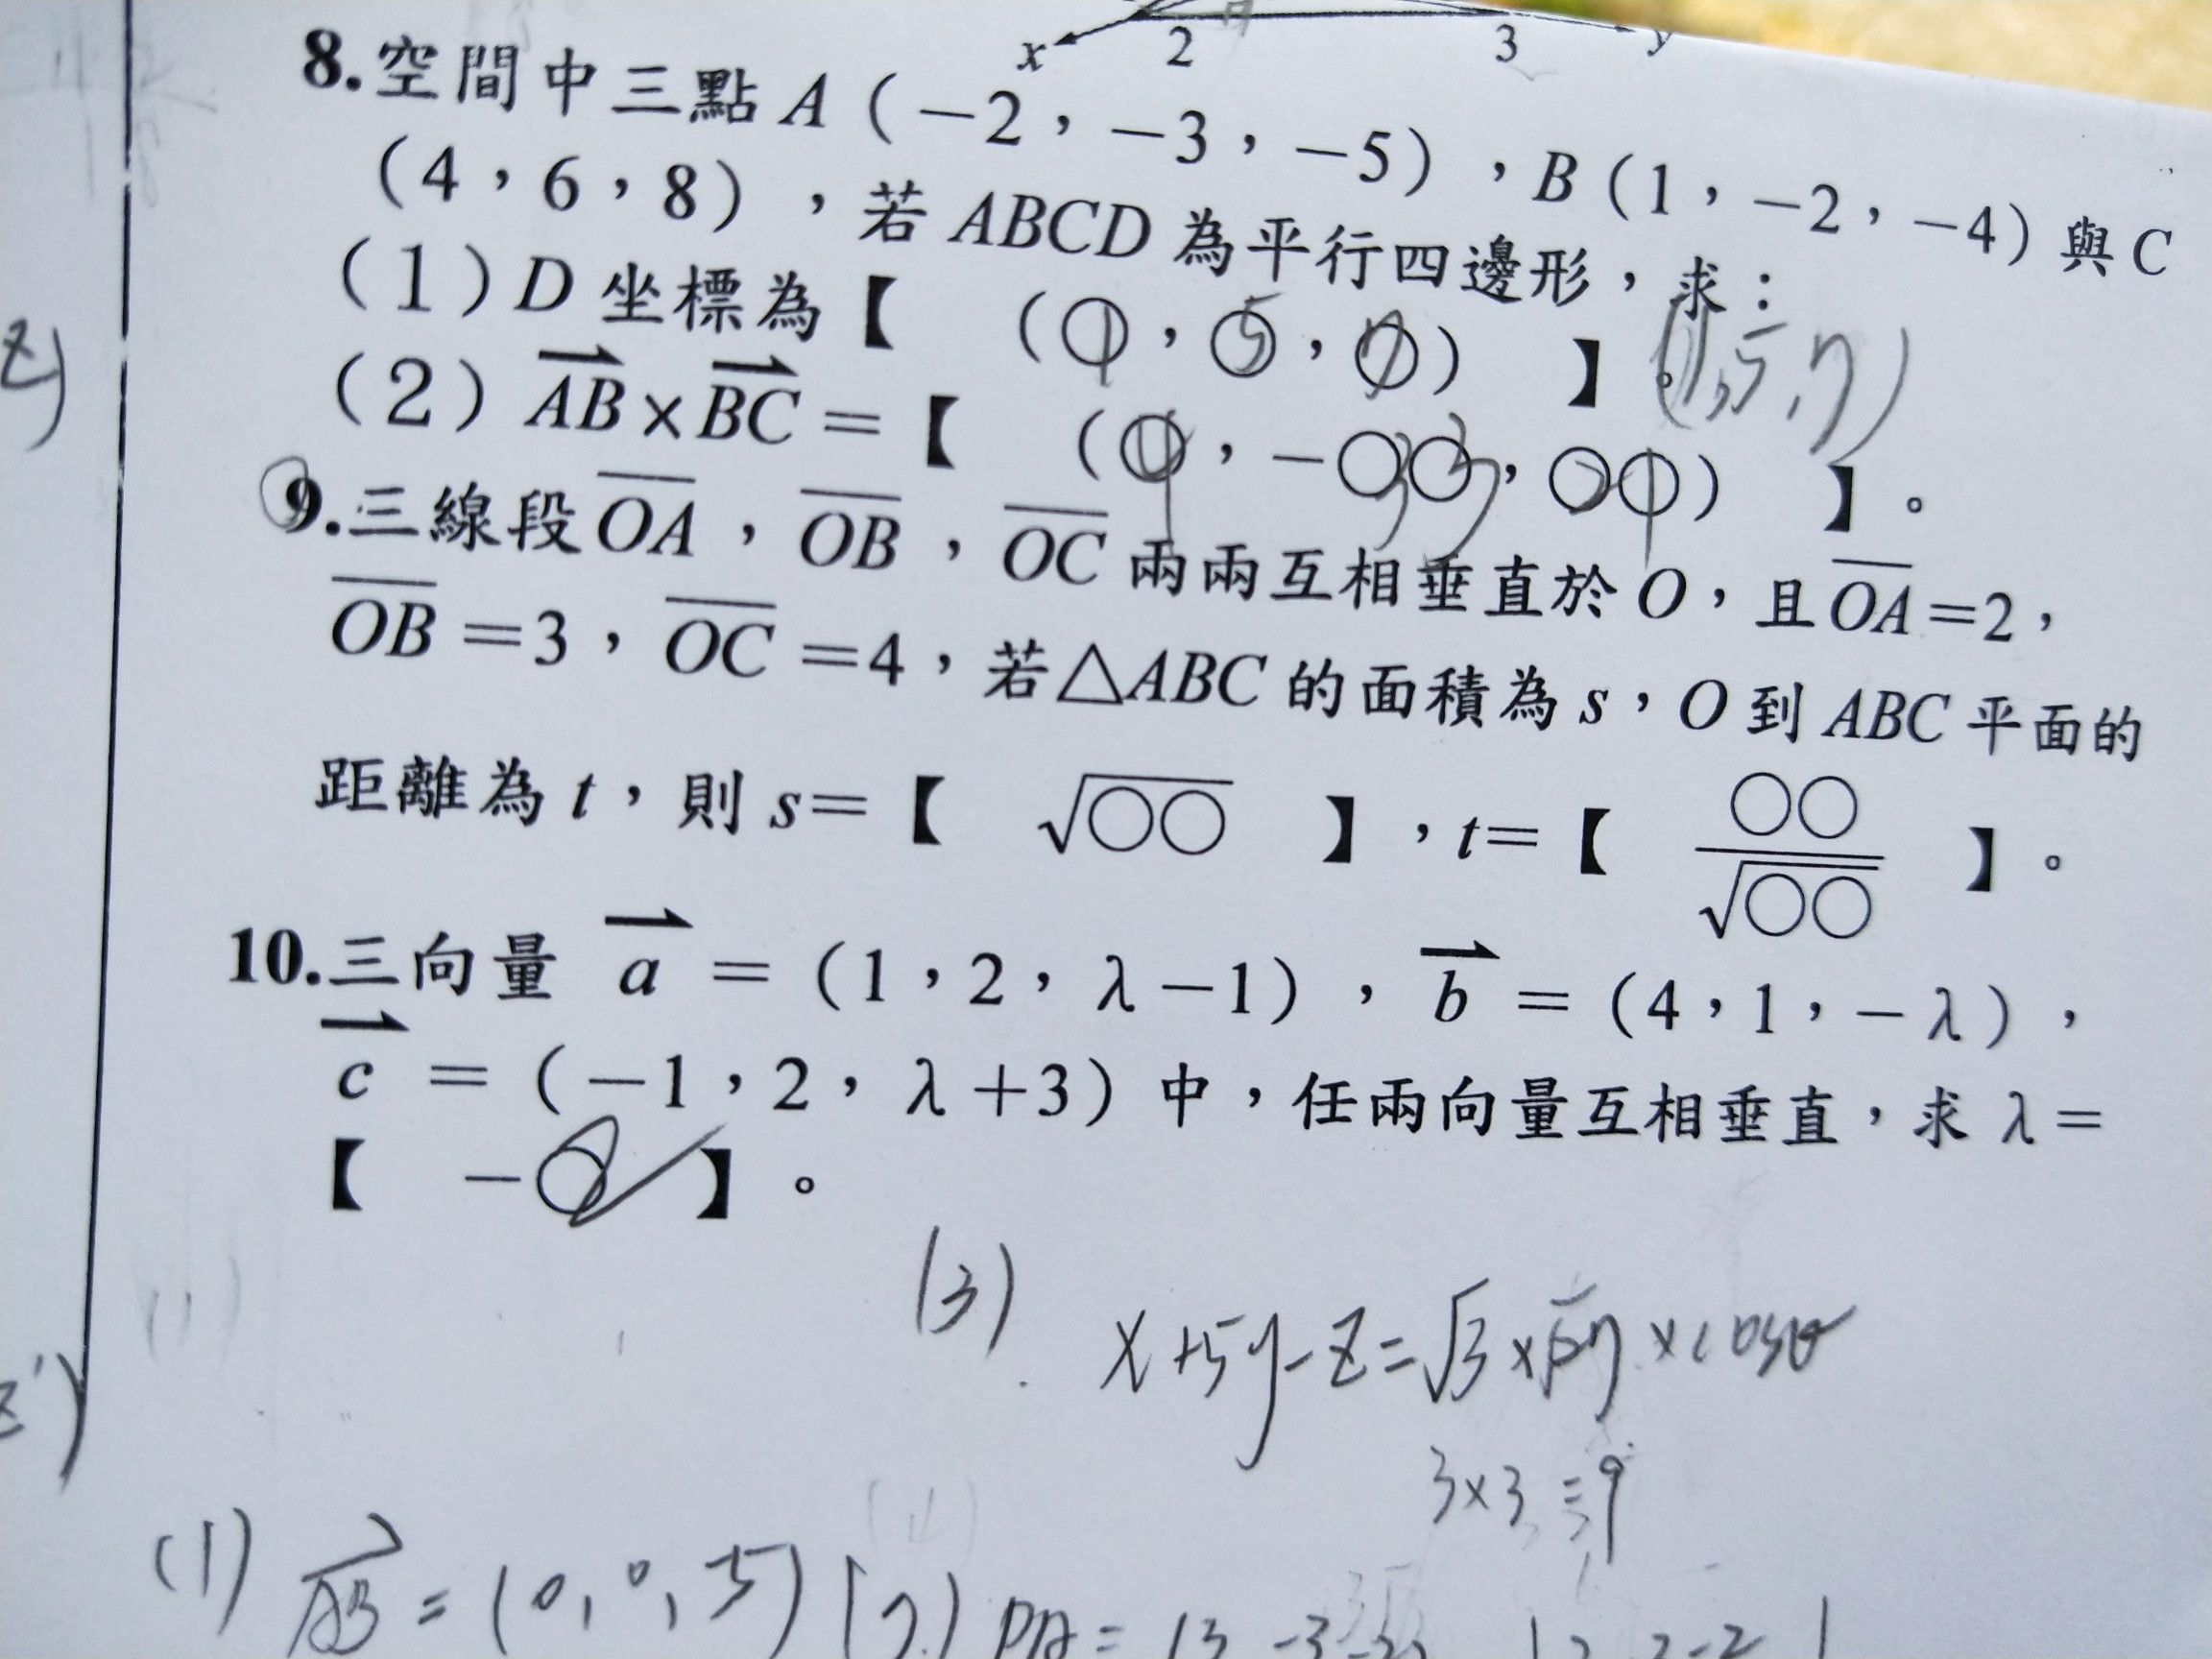 x 2 3 y
8.空間中三點A(-2,-3,-5),B(1,-2,-4)與C
(4,6,8),若ABCD為平行四邊形,求:
(1)D坐標為【 (○,○,○) 】。(1,5,7)
(2)AB×BC=【 (○,-○○,○○) 】。
9.三線段OA,OB,OC兩兩互相垂直於O,且OA=2,
OB=3,OC=4,若△ABC的面積為s,O到ABC平面的
距離為t,則s=【 √○○ 】,t=【 ○○/√○○ 】。
10.三向量 a=(1,2,λ-1),b=(4,1,-λ),
c=(-1,2,λ+3)中,任兩向量互相垂直,求λ=
【 -○ 】。
(3)
x+5y-z=√3×√27×cosθ
3×3=9
(1) AB=(0,0,5)